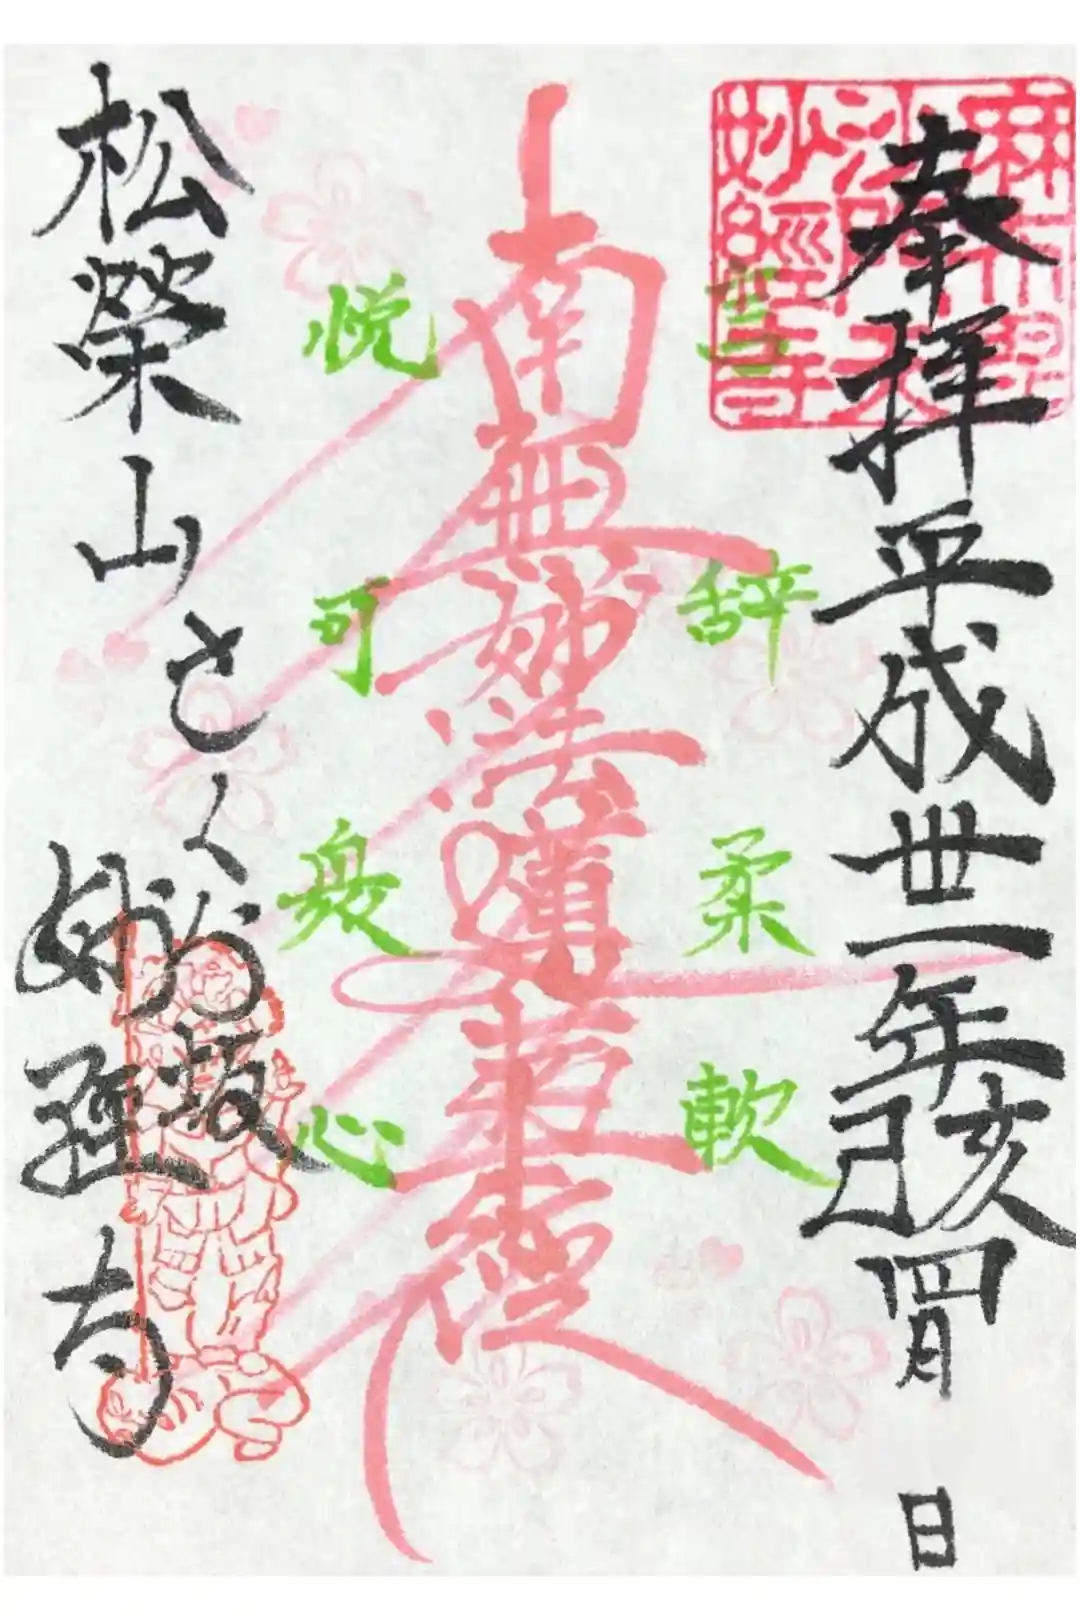 奉拝 平成丗一年己亥 四月 日
妙經寺
言辞柔軟
南無妙法蓮華経
悦可衆心
松榮山 さくら坂
妙経寺